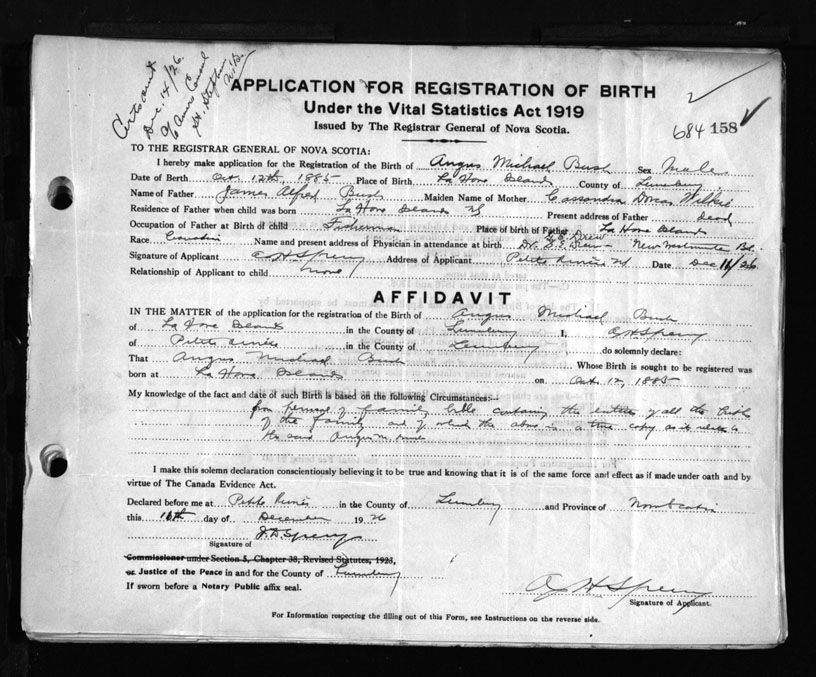 Dec. 14/26.
APPLICATION FOR REGISTRATION OF BIRTH
Under the Vital Statistics Act 1919
Issued by The Registrar General of Nova Scotia.
684 158
TO THE REGISTRAR GENERAL OF NOVA SCOTIA:
I hereby make application for the Registration of the Birth of Angus Michael Bush Sex Male
Date of Birth Oct 12th, 1885 Place of Birth La Have Islands County of Lunenburg
Name of Father James Alfred Bush Maiden Name of Mother Cassandra Dorcas Wilkie
Residence of Father when child was born La Have Islands NS Present address of Father Dead
Occupation of Father at Birth of child Fisherman Place of birth of Father La Have Islands
Race Name and present address of Physician in attendance at birth Dr. Drew New Westminster B.C.
Signature of Applicant Address of Applicant Petite Riviere NS Date Dec 11/26
Relationship of Applicant to child none
AFFIDAVIT
IN THE MATTER of the application for the registration of the Birth of Angus Michael Bush
of La Have Islands in the County of Lunenburg I,
of Petite Riviere in the County of Lunenburg do solemnly declare:
That Angus Michael Bush Whose Birth is sought to be registered was
born at La Have Islands on Oct. 12, 1885
My knowledge of the fact and date of such Birth is based on the following Circumstances:—
from perusal of family bible containing the entries of all the births
of the family and of which the above is a true copy as it relates to
the said Angus M. Bush
I make this solemn declaration conscientiously believing it to be true and knowing that it is of the same force and effect as if made under oath and by
virtue of The Canada Evidence Act.
Declared before me at Petite Riviere in the County of Lunenburg and Province of Nova Scotia
this 11th day of December 1926
Signature of
Commissioner under Section 5, Chapter 38, Revised Statutes, 1923,
or Justice of the Peace in and for the County of Lunenburg
If sworn before a Notary Public affix seal.
Signature of Applicant.
For Information respecting the filling out of this Form, see Instructions on the reverse side.